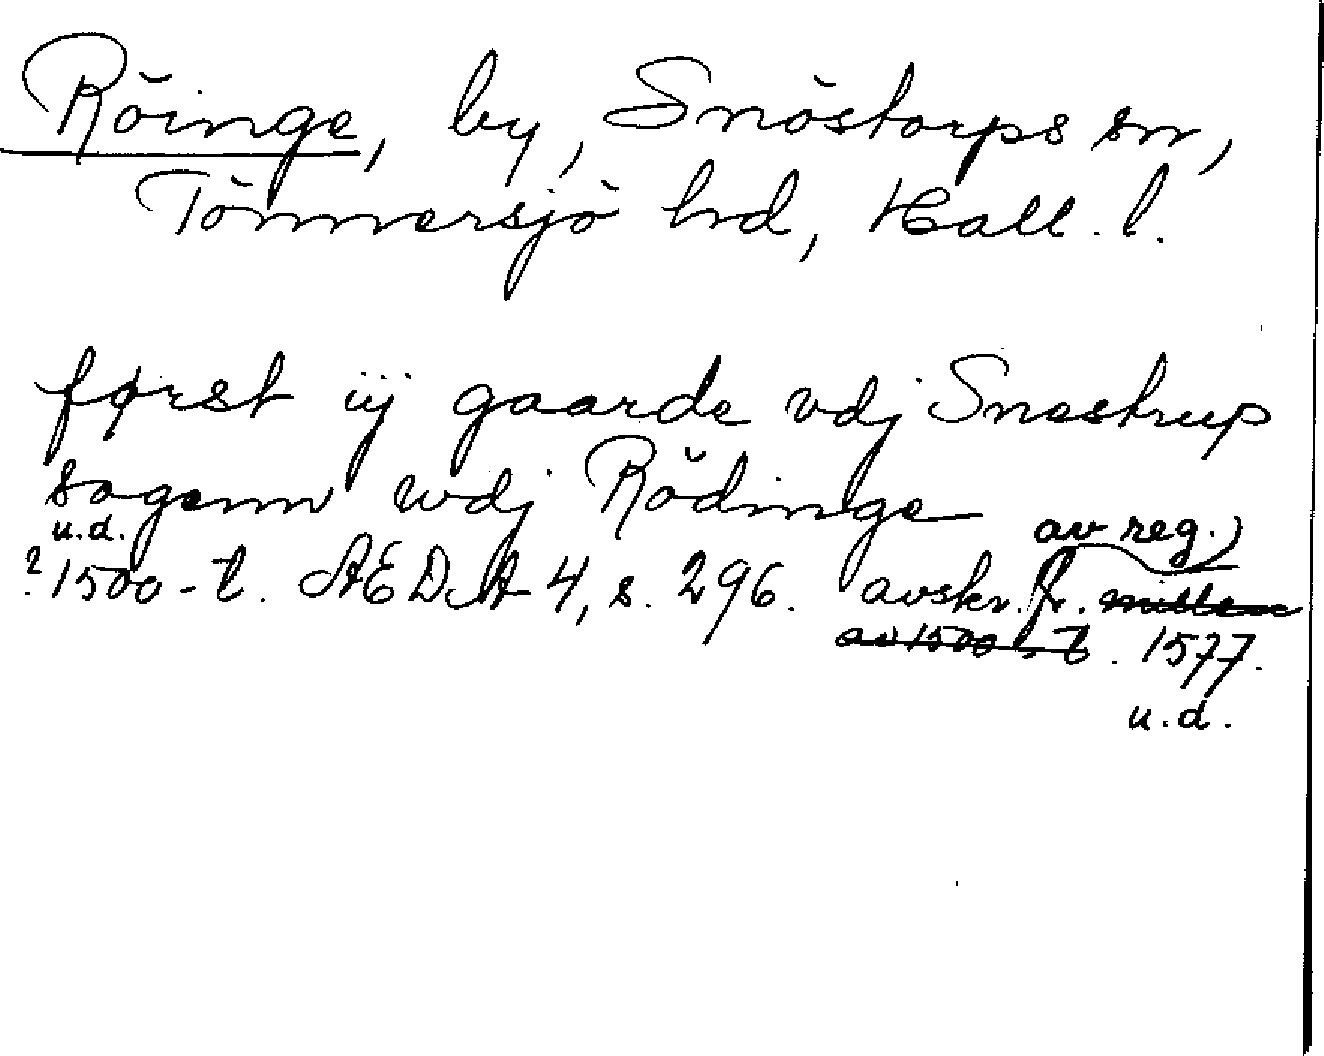 Röinge, by, Snöstorps sn,
Tönnersjö hd, Hall. l.
først iij gaarde vdj Snestrup
sogenn wdj Rödinge
u.d. av reg.
?1500-t. AEDA 4, s. 296. avskr. fr. mitten
av 1500-t. 1577.
u.d.